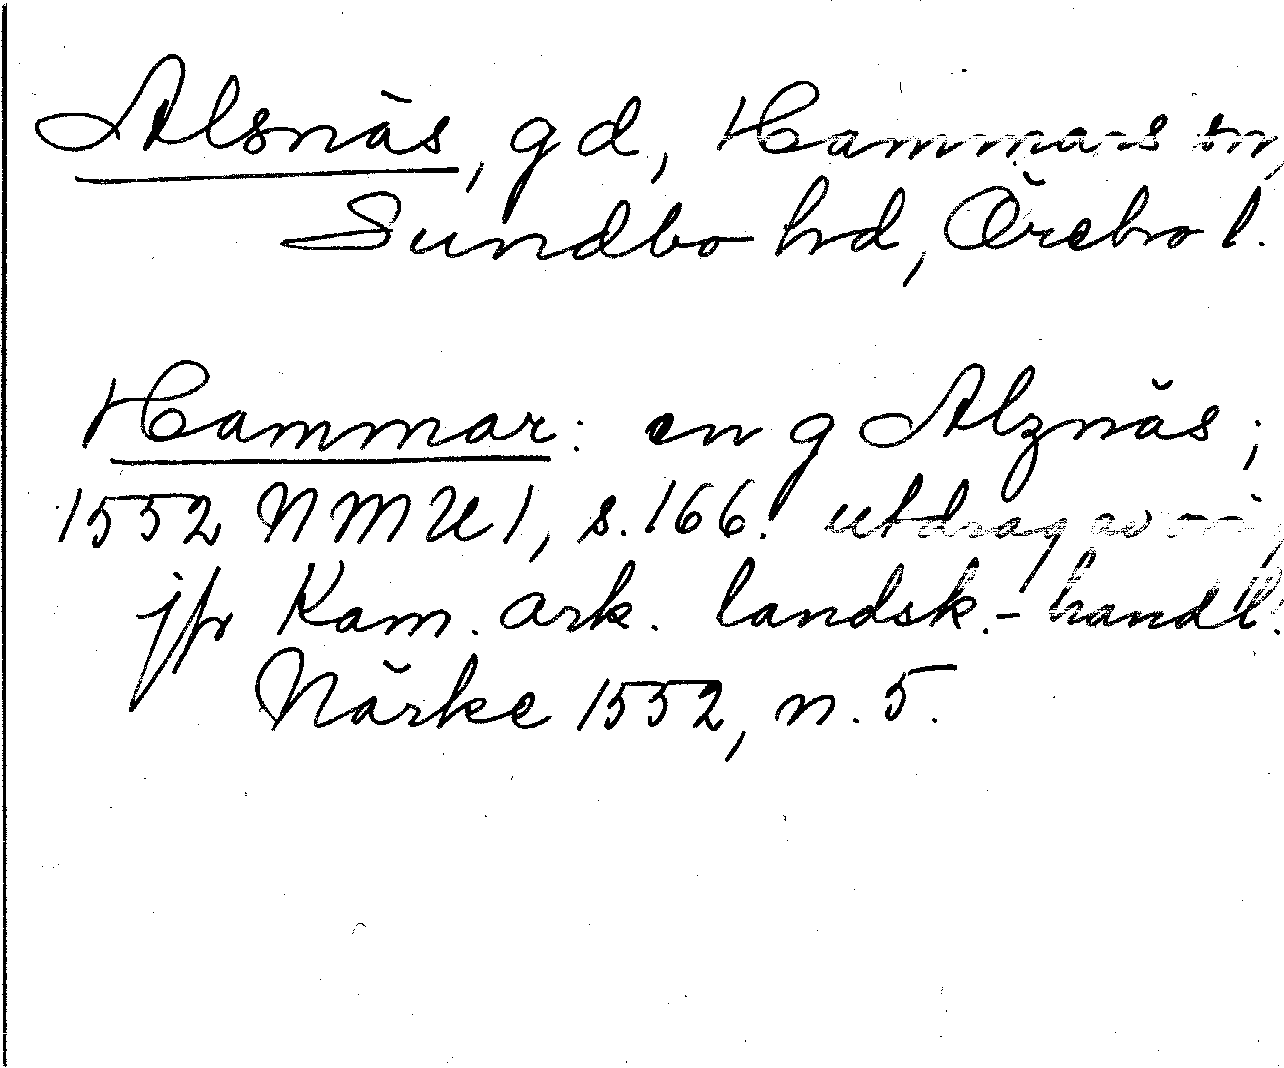 Alsnäs, gd, Hammars sn,
Sundbo hd, Örebro l.
Hammar: en g Alznäs;
1552 NMU 1, s. 166. utdrag av
jfr Kam. ark. landsk.-handl.
Närke 1552, n. 5.